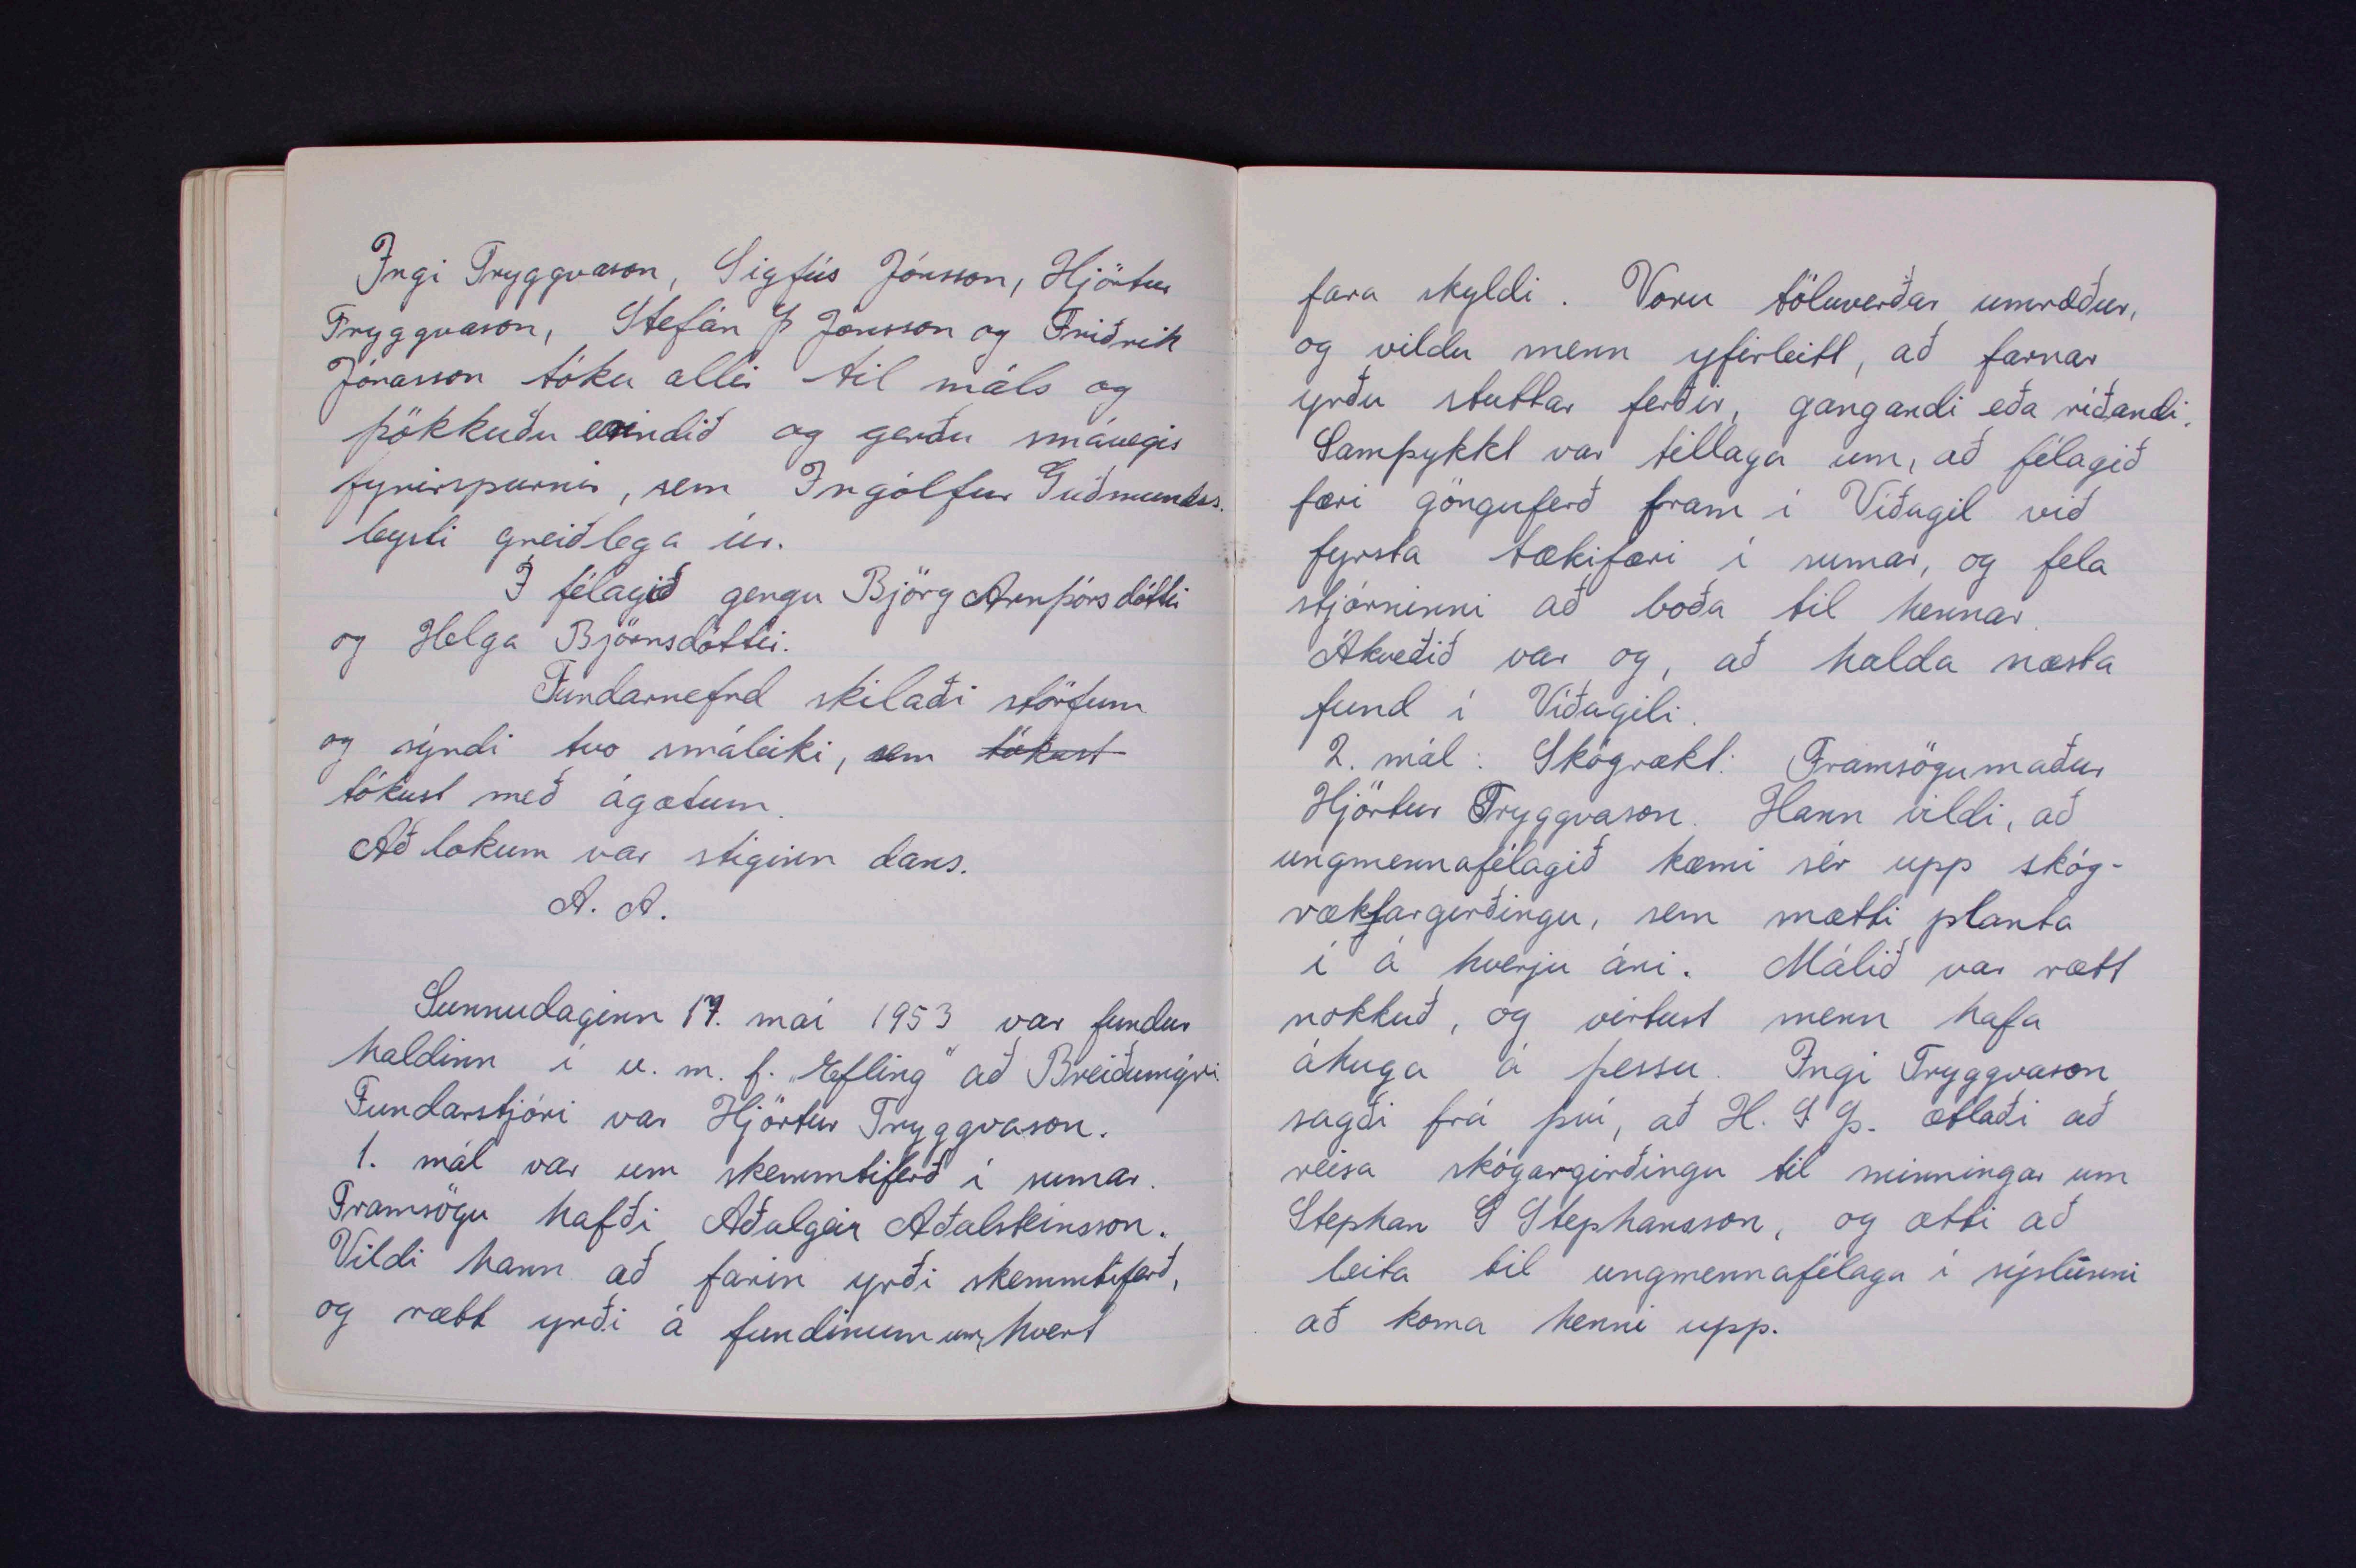 Ingi Tryggvason, Sigfús Jónsson, Hjörtur
Tryggvason, Stefán Þ Jónsson og Friðrik
Jónasson tóku allir til máls og
þökkuðu erindið og gerðu smávegis
fyrirspurnir, sem Ingólfur Guðmundss.
leysti greiðlega úr.
Í félagið gengu Björg Arnþórsdóttir
og Helga Björnsdóttir.
Fundarnefnd skilaði störfum
og sýndi tvo smáleiki, sem tókust
tókust með ágætum.
Að lokum var stiginn dans.
A. A.
Sunnudaginn 17. maí 1953 var fundur
haldinn í u. m. f. „Efling" að Breiðumýri
Fundarstjóri var Hjörtur Tryggvason.
1. mál var um skemmtiferð í sumar.
Framsögu hafði Aðalgeir Aðalsteinsson.
Vildi hann að farin yrði skemmtiferð,
og rætt yrði á fundinum um, hvert
fara skyldi. Voru töluverðar umræður,
og vildu menn yfirleitt, að farnar
yrðu stuttar ferðir, gangandi eða ríðandi.
Samþykkt var tillaga um, að félagið
færi gönguferð fram í Víðagil við
fyrsta tækifæri í sumar, og fela
stjórninni að boða til hennar.
Ákveðið var og, að halda næsta
fund í Víðagili.
2. mál: Skógrækt: Framsögumaður
Hjörtur Tryggvason. Hann vildi, að
ungmennafélagið kæmi sér upp skóg-
ræktargirðingu, sem mætti planta
í á hverju ári. Málið var rætt
nokkuð, og virtust menn hafa
áhuga á þessu. Ingi Tryggvason
sagði frá því, að H. S Þ. ætlaði að
reisa skógargirðingu til minningar um
Stephan G Stephansson, og ætti að
leita til ungmennafélaga í sýslunni
að koma henni upp.